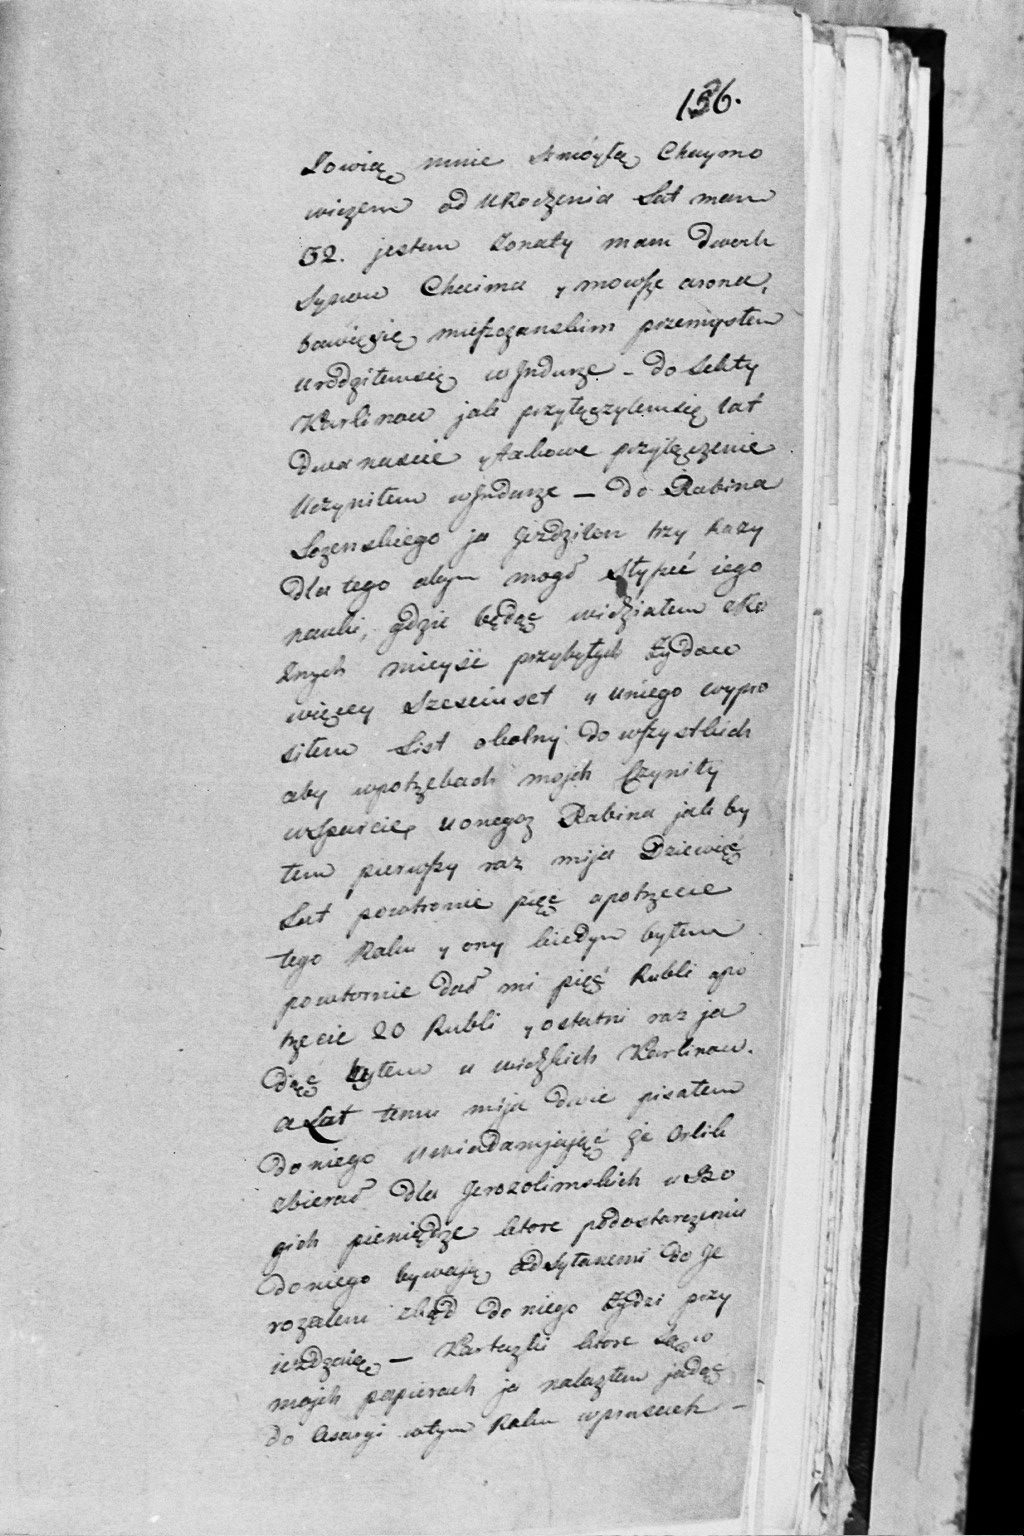 136.
Zowią mnie Szmóyłą Chaymo
wiczem od Urodzenia Lat mam
32. jestem żonaty mam dwoch
Synow Chaima y mowszę arona,
bawięsię mieszczanskim przemysłem
urodziłemsię w Jndurze – do Sekty
Karlinow jak przyłączylemsię lat
dwanascie y takowe przyłączenie
Uczyniłem w Jndurze – do Rabina
Lozenskiego ja jezdziłem trzy Razy
dla tego abym mogł Słyszeć iego
nauki, gdzie będąc widziałem z Ro
żnych mieysć przybyłych żydow
więcey Szesciuset y uniego wypro
siłem List okolny do wszystkich
aby wpotrzebach mojch Czyniły
wsparcie, uonegoz Rabina jak by
łem pierwszy raz mija Dziewięć
Lat powtornie pięć apotrzecie
tego Roku y ony kiedym byłem
powtornie dał mi pięć Rubli apo
trzecie 20 Rubli y ostatni raz ja
dąc byłem u widzkich Karlinow.
a Lat temu mija dwie pisałem
doniego uwiadamjająć że Orlik
zbierał dla Jerozolimskich uBo
gich pieniędze ktore podostarczeniu
doniego bywają odsyłanemi do Je
rozalem zkąd do niego żydzi przy
ieżdzaią – Kartuzki ktore są w
mojch papierach ja nalazłem jadąc
do wtym Roku wprusach –